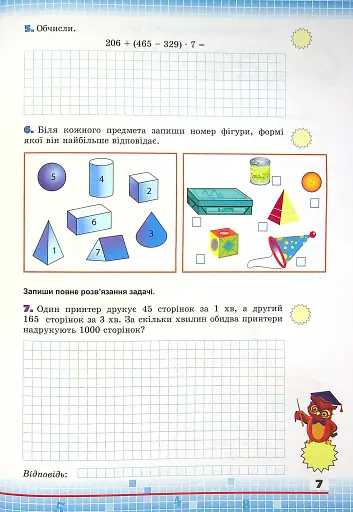 5. Обчисли.
206 + (465 − 329) · 7 =
6. Біля кожного предмета запиши номер фігури, формі
якої він найбільше відповідає.
5
4
2
6
1
7
3
Запиши повне розв'язання задачі.
7. Один принтер друкує 45 сторінок за 1 хв, а другий
165 сторінок за 3 хв. За скільки хвилин обидва принтери
надрукують 1000 сторінок?
Відповідь:
7